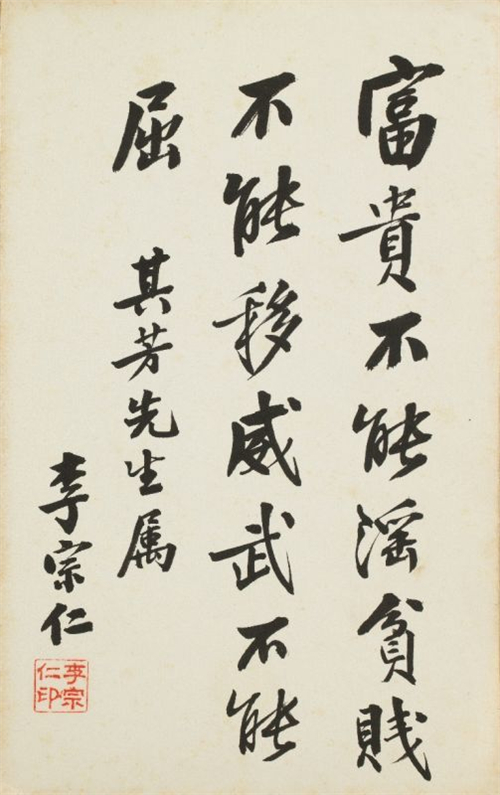 富貴不能淫貧賤
不能移威武不能
屈 其芳先生属
李宗仁
李宗仁印